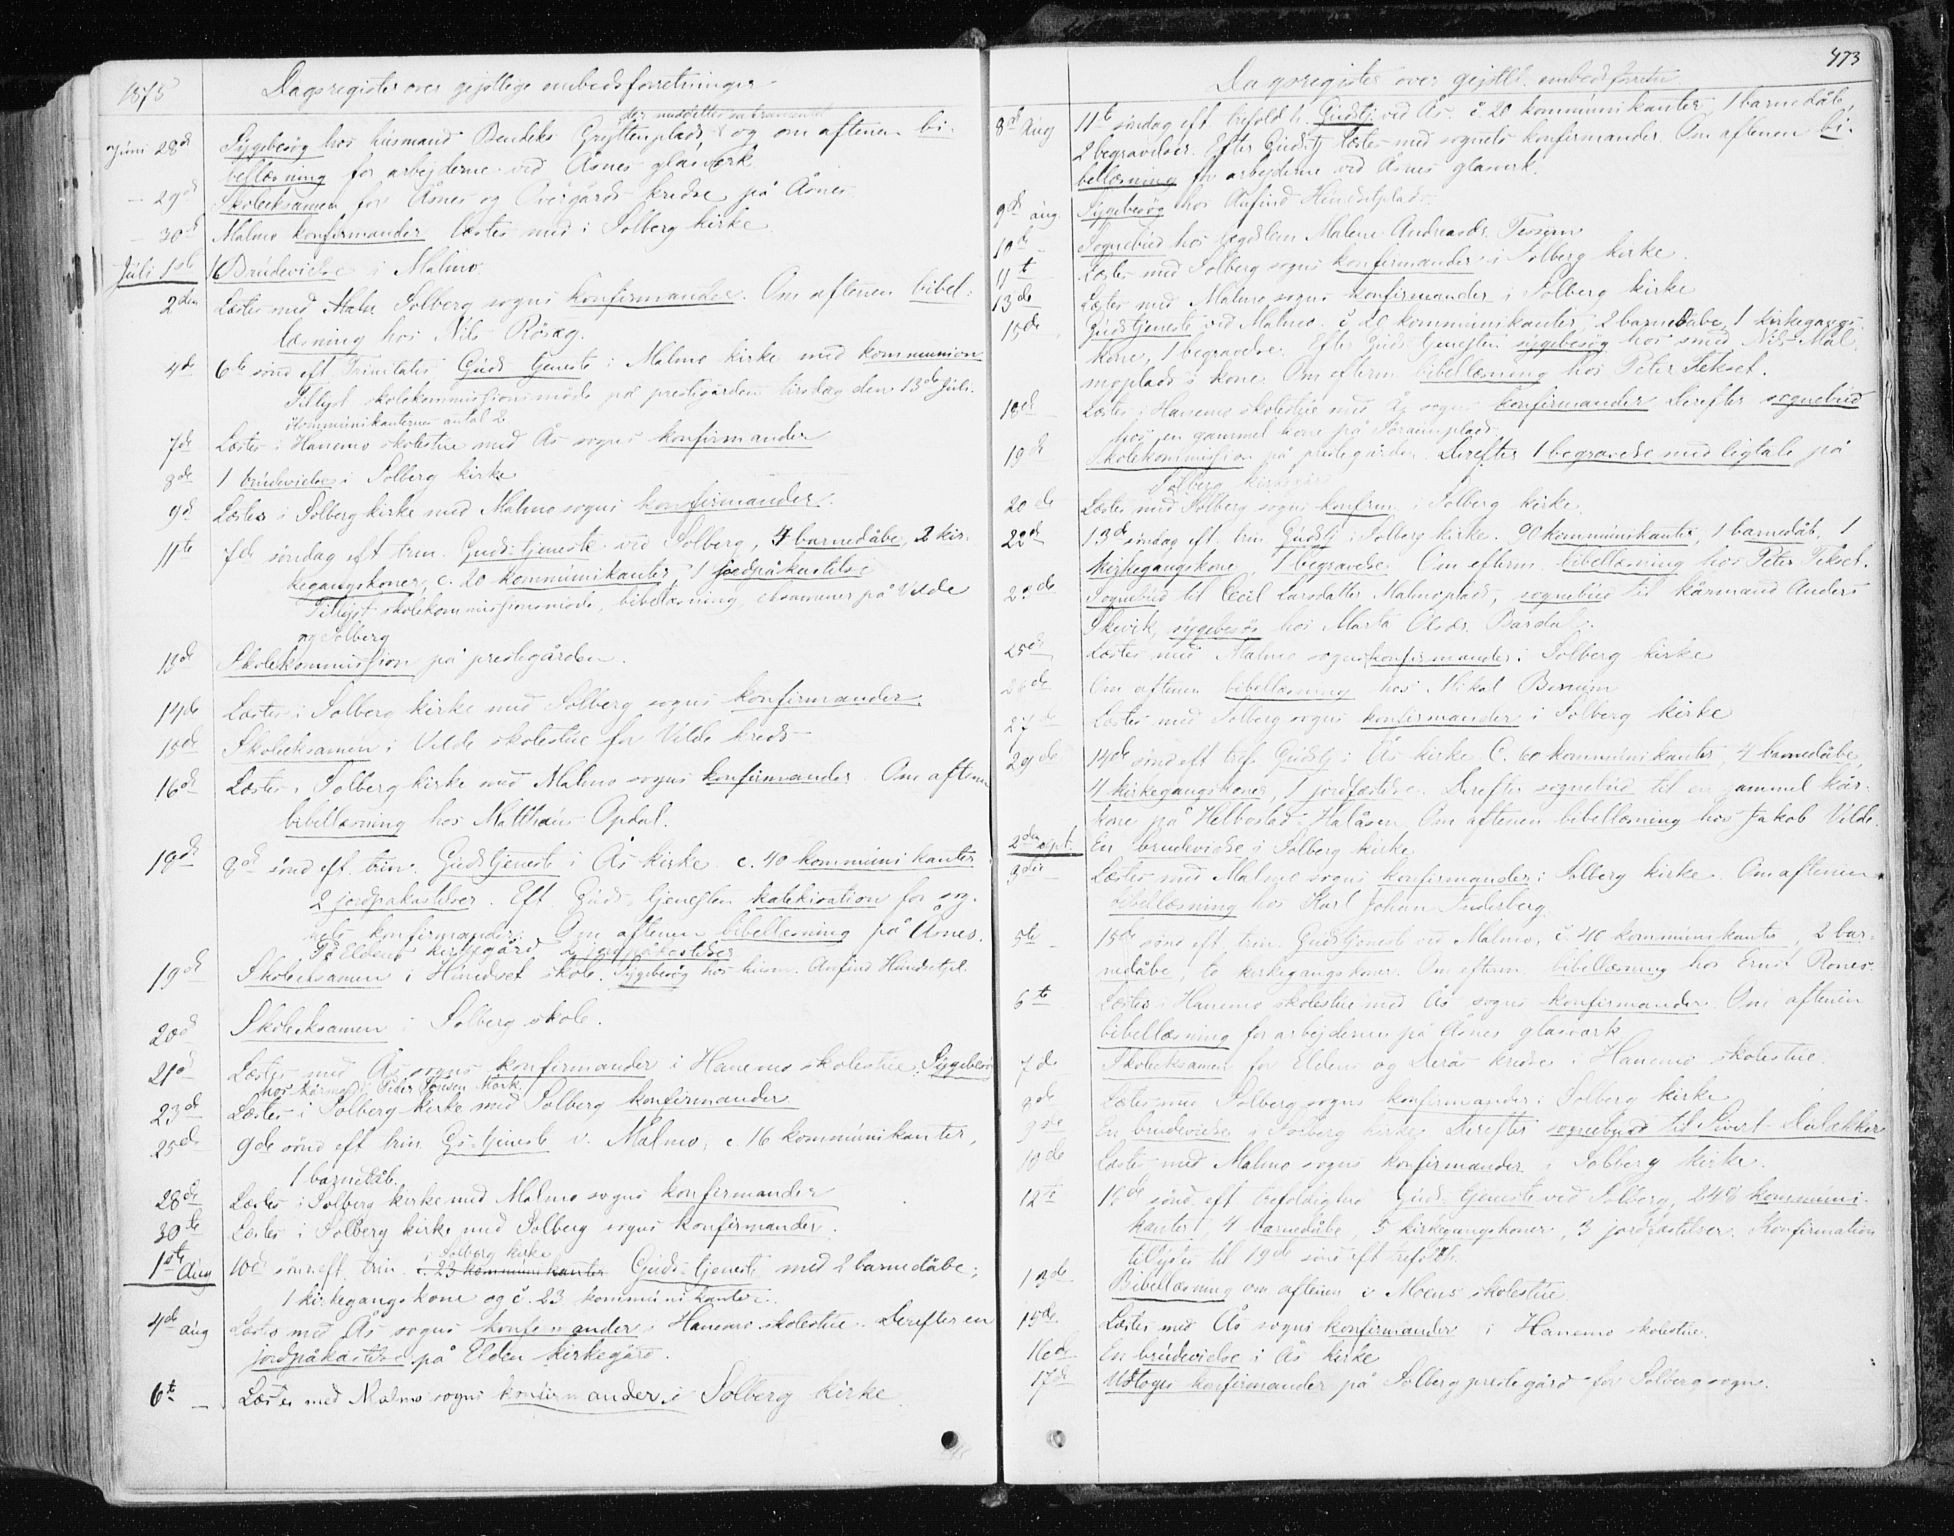 1875 Dagsregister over gejstlige embedsforretninger
der meddeltes sakramentet
Juni 28de Sygebesøg hos husmand Bendiks Gryttenplads, & og om aftenen bi-
bellæsning for arbejderne ved Åsnes glasværk
— 29de Skoleeksamen for Åsnes og Overgårds kredse på Åsnes
— 30te Malmo konfirmander læstes med i Solberg kirke
Juli 1ste 1 Brudevielse i Malmo
2den Læstes med Malm Solberg sogns konfirmander. Om aftenen bibel-
læsning hos Nils Rösæg.
4de 6te sönd eft Trinitatis Guds tjeneste i Malmo kirke med kommunion
Tillyst skolekommissionsmöde på prestegården tirsdag den 13de Juli.
Kommunikanternes antal 2
7de Læstes i Hanemo skolestue med Ås sogns konfirmander
8de 1 brudevielse i Solberg kirke
9de Læstes i Solberg kirke med Malmo sogns konfirmander.
11te 7de söndag eft trin. Guds-tjeneste ved Solberg, 4 barnedåbe, 2 kir-
kegangskoner, c. 20 kommunikanter, 1 jordpåkastelse
Tillyst skolekommissionsmöde, bibellæsning eksamener på Vilde
og Solberg
13de Skolekommission på prestegården.
14de Læstes i Solberg kirke med Solberg sogns konfirmander.
15de Skoleeksamen i Vilde skolestue for Vilde kreds
16de Læstes i Solberg kirke med Malmo sogns konfirmander. Om aftenen
bibellæsning hos Matthæus Opdal.
18de 8de sönd eft trin. Gudstjeneste i Ås kirke c. 40 kommunikanter
2 jordpåkastelser. Eft Guds-tjenesten katekisation for sog-
nets konfirmander. Om aftenen bibellæsning på Åsnes.
På Eldens kirkegård 2 jordpåkastelser
19de Skoleeksamen i Hundset skole. Sygebesøg hos husm. Anfind Hundsetpl.
20de Skoleeksamen i Solberg skole.
21de Læstes med Ås sogns konfirmander i Hanemo skolestue. Sygebesøg
hos kårmand Peder Jonsen Mork
23de Læstes i Solberg kirke med Solberg konfirmander
25de 9de sönd eft trin Gs-tjeneste v. Malmo, c. 16 kommunikanter,
1 barnedåb.
28de Læstes i Solberg kirke med Malmo sogns konfirmander
30te Læstes i Solberg kirke med Solberg sogns konfirmander.
i Solberg kirke
1ste Aug 10de sönd eft trin c. 23 kommunikanter Guds-tjeneste med 2 barnedåbe;
1 kirkegangskone og c. 23 kommunikanter.
4de aug Læstes med Ås sogns konfirmander i Hanemo skolestue. Derefter en
jordpåkastelse på Elden kirkegård.
6te — Læstes med Malmo sogns konfirmander i Solberg kirke
473
Dagsregister over gejstl. embedsforretn.
8de Aug 11te söndag eft trefold h. Gudstj ved Ås. c 20 kommunikanter, 1 barnedåb,
2 begravelser. Efter Gudstj læstes med sognets konfirmander. Om aftenen bi-
bellæsning for arbejderne ved Åsnes glasværk.
9de aug. Sygebesøg hos Anfind Hundsetplads
10de — Sognebud hos legdslem Malene Andreasdr. Tessem
11te Læstes med Solberg sogns konfirmander i Solberg kirke.
13de Læstes med Malmo sogns konfirmander i Solberg kirke
15de Gudstjeneste ved Malmo. c 20 kommunikanter, 2 barnedåbe, 1 kirkegangs-
kone, 1 begravelse. Efter Guds tjenesten sygebesøg hos smed Nils Mal-
moplads's kone. Om efterm. bibellæsning hos Peter Tekset.
18de Læstes i Hanemo skolestue med Ås sogns konfirmander Derefter sognebud
hos en gammel kone på plads
19de Skolekommission på prestegården. Derefter 1 begravelse med ligtale på
Solberg kirkegård
20de Læstes med Solberg sogns konfirm. i Solberg kirke.
22de 13de söndag eft. trin Gudstj i Solberg kirke. 90 kommunikanter, 1 barnedåb, 1
kirkegangskone, 1 begravelse. Om efterm. bibellæsning hos Peter Tekset.
23de Sognebud til Cecil Larsdatter Malmoplads, sognebud til kårmand Anders
Skevik, sygebesøg hos Marta Olsdr. Bardal.
25de Læstes med Malmo sogns konfirmander i Solberg kirke
26de Om aftenen bibellæsning hos Mikal Benum
27de Læstes med Solberg sogns konfirmander i Solberg kirke
29de 14de sönd eft tref. Gudstj i Ås kirke C. 60 kommunikanter, 4 barnedåbe,
4 kirkegangskoner, 1 jordfæstelse. Derefter sognebud til en gammel kår-
kone på Helbostad-Halåsen. Om aftenen bibellæsning hos Jakob Vilde.
2den sept. En brudevielse i Solberg kirke
3die Læstes med Malmo sogns konfirmander i Solberg kirke. Om aftenen
bibellæsning hos Karl Johan Inderberg
5te — 15de sönd eft trin. Gudstjeneste ved Malmo, c 40 kommunikanter, 2 bar-
nedåbe, to kirkegangskoner. Om efterm. bibellæsning hos Ernst Rones.
6te Læstes i Hanemo skolestue med Ås sogns konfirmander. Om aftenen
bibellæsning for arbejderne på Åsnes glasværk
7de Skoleeksamen for Eldens og Derås kredse i Hanemo skolestue.
8de Læstes med Solberg sogns konfirmander i Solberg kirke
9de En brudevielse i Solberg kirke. Derefter sognebud til Sivert
10de Læstes med Malmo sogns konfirmander i Solberg kirke.
12te 16de sönd eft trefoldighed Guds tjeneste ved Solberg, 248 kommuni-
kanter, 4 barnedåbe, 5 kirkegangskoner, 3 jordfæstelser. Konfirmation
tillyses til 19de sönd eft trefoldh.
13de Bibellæsning om aftenen i Moens skolestue
15de Læstes med Ås sogns konfirmander i Hanemo skolestue.
16de En brudevielse i Ås kirke
17de Udtoges konfirmander på Solberg prestegård for Solberg sogn.